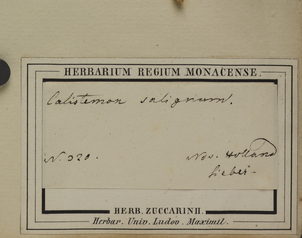 HERBARIUM REGIUM MONACENSE.
Calistemon salignum.
N. 320.
Nov. Holland
Sieber.
HERB. ZUCCARINII.
Herbar. Univ. Ludov. Maximil.